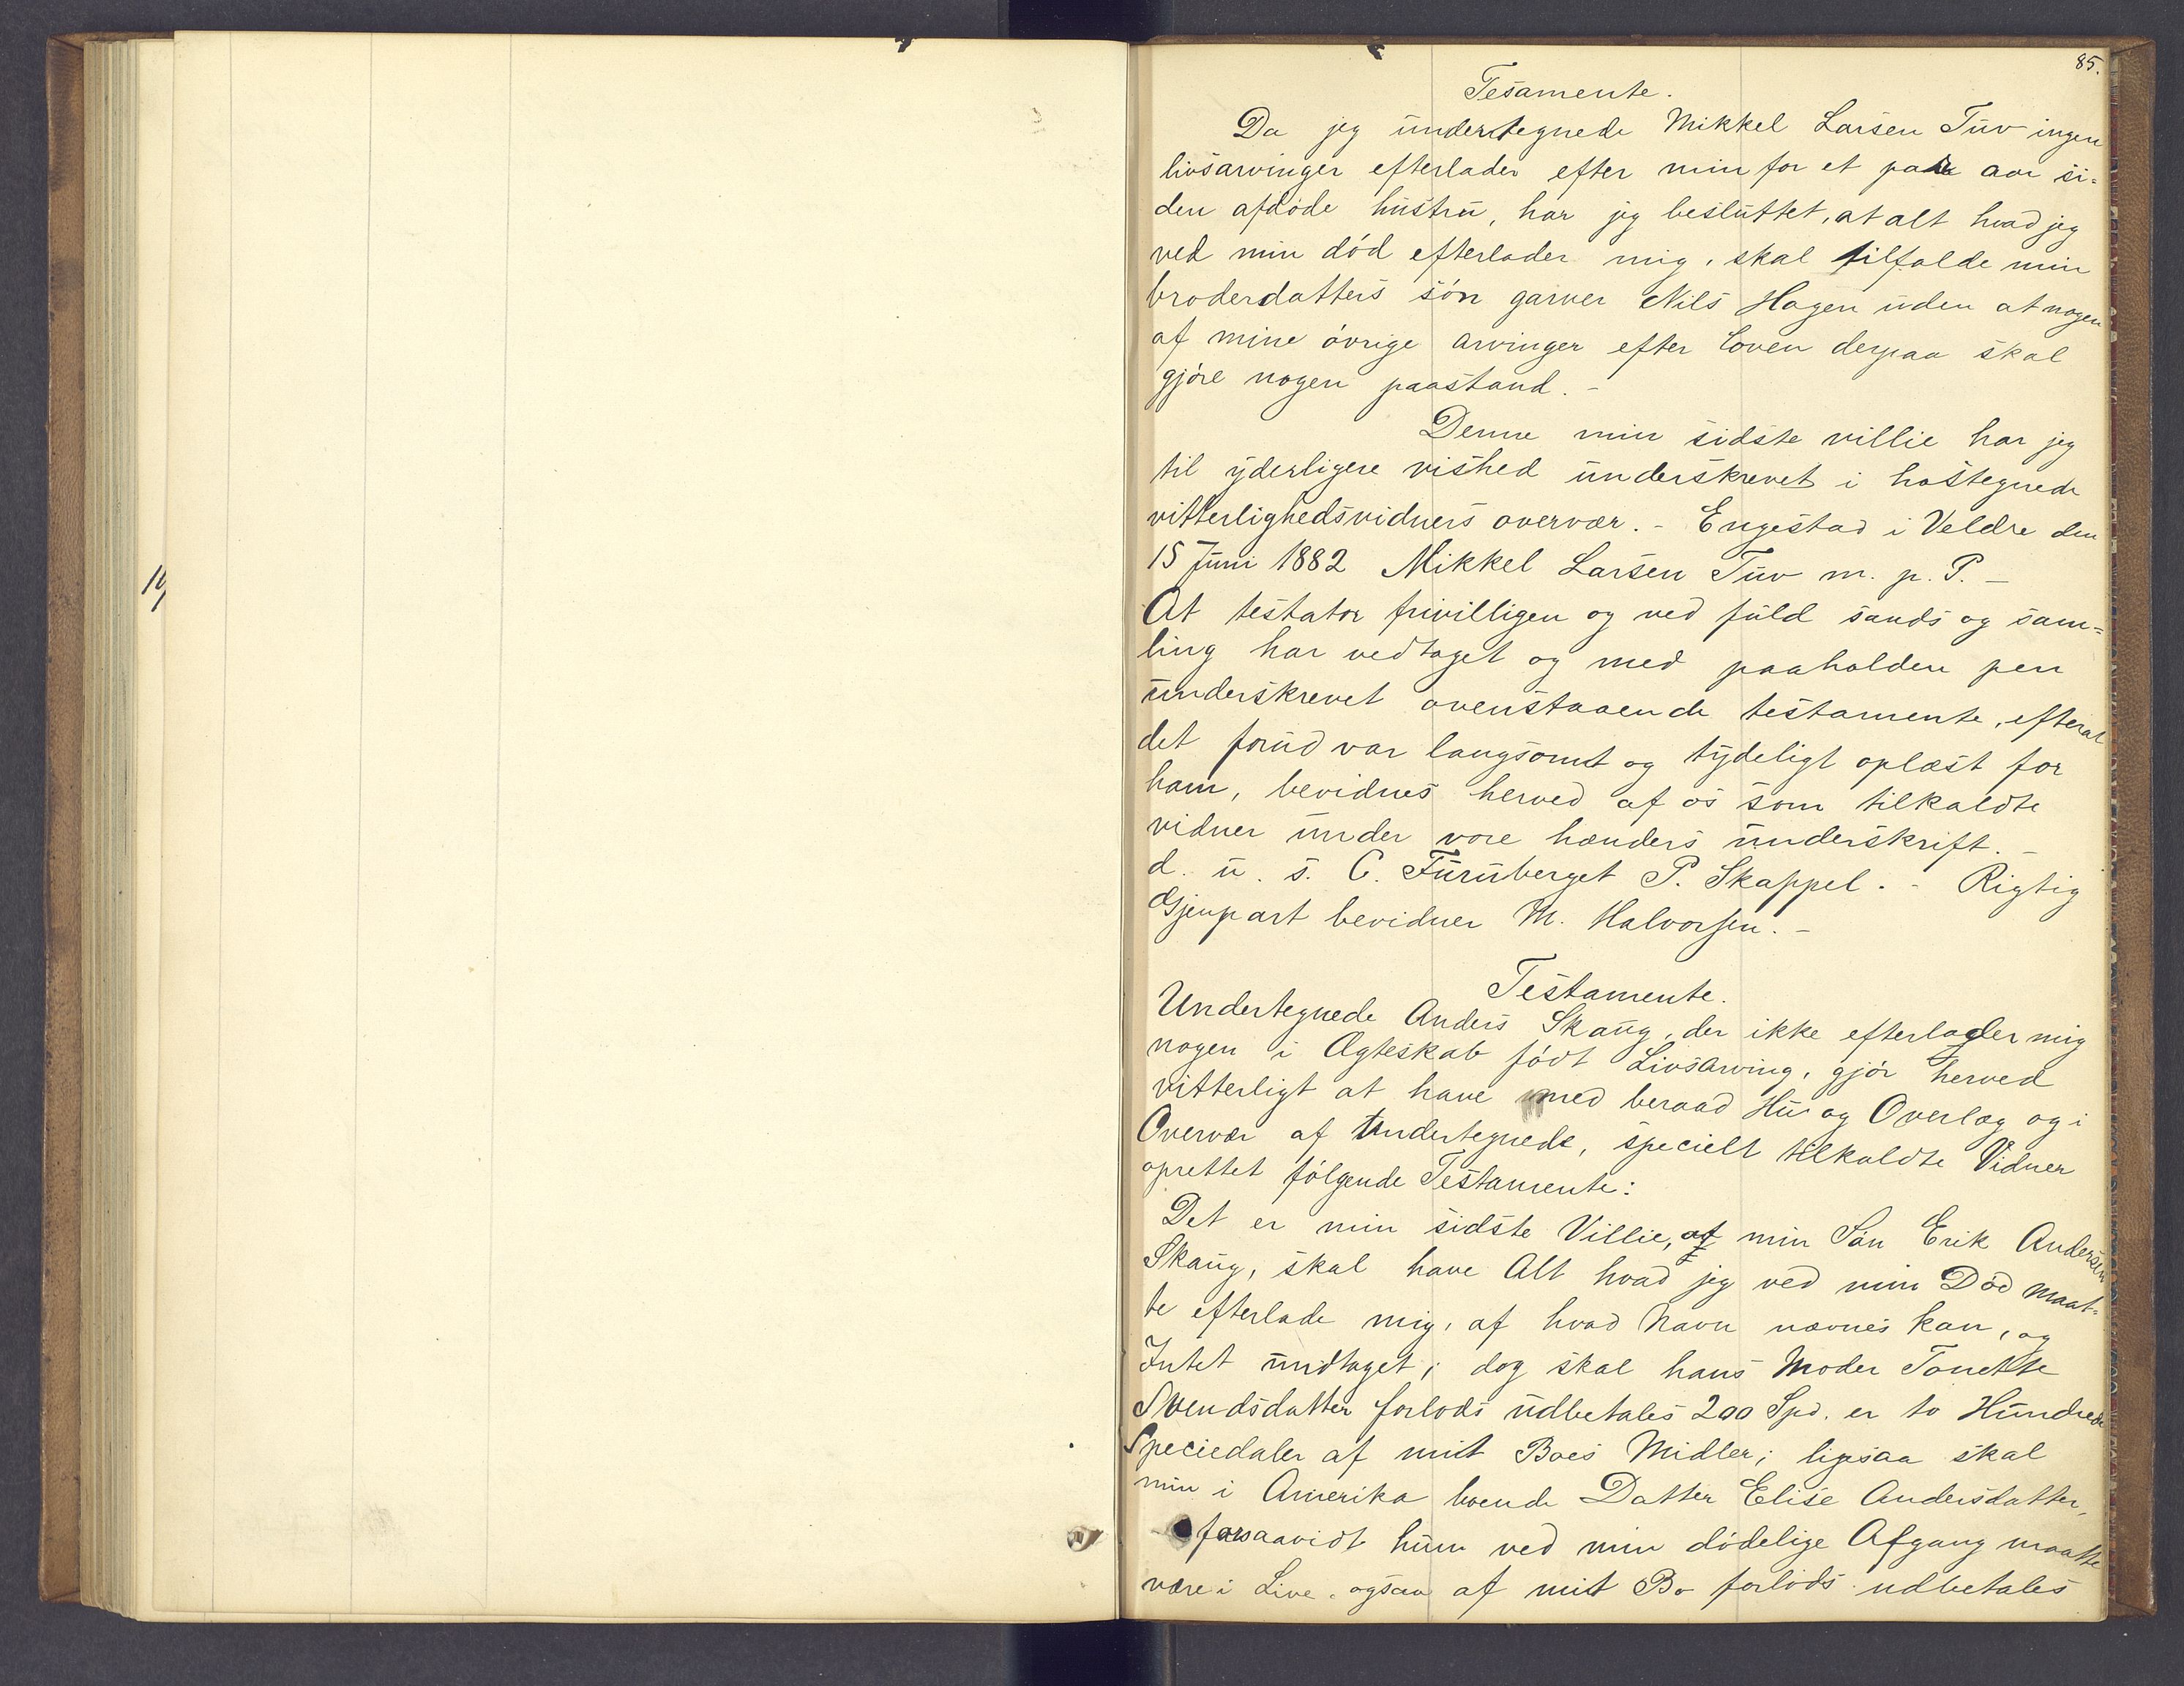 85.
Tesamente.
Da jeg undertegnede Mikkel Larsen Tuv ingen
livsarvinger efterlader efter min for et par aar si-
den afdøde hustru, har jeg besluttet, at alt hvad jeg
ved min død efterlader mig, skal tilfalde min
broderdatters søn garver Nils Hagen uden at nogen
af mine øvrige arvinger efter loven derpaa skal
gjøre nogen paastand. -
Denne min sidste villie har jeg
til yderligere vished underskrevet i hostegnede
vitterlighedsvidners overvær. - Engestad i Veldre den
15 Juni 1882 Mikkel Larsen Tuv m. p. P. -
At testator frivilligen og ved fuld sands og sam-
ling har vedtaget og med paaholden pen
underskrevet ovenstaaende testamente, efterat
det forud var langsomt og tydeligt oplæst for
ham, bevidnes herved af os som tilkaldte
vidner under vore hænders underskrift. -
d. u. s. C. Furuberget P. Skappel. - Rigtig
Gjenpart bevidner M. Halvorsen. -
Testamente.
Undertegnede Anders Skaug, der ikke efterlader mig
nogen i Ægteskab født Livsarving, gjør herved
vitterligt at have med beraad Hu og Overlæg og i
Overvær af Undertegnede, specielt tilkaldte Vidner
oprettet følgende Testamente:
Det er min sidste Villie, at min Søn Erik Andersen
Skaug, skal have Alt hvad jeg ved min Død maat-
te efterlade mig, af hvad Navn nævnes kan, og
Intet undtaget; dog skal hans Moder Tonette
Svendsdatter forlods udbetales 200 Spd. er to Hundrede
Speciedaler af mit Boes Midler; ligesaa skal
min i Amerika boende Datter Elise Andersdatter,
forsaavidt hun ved min dødelige Afgang maatte
være i Live, ogsaa af mit Bo forlods udbetales